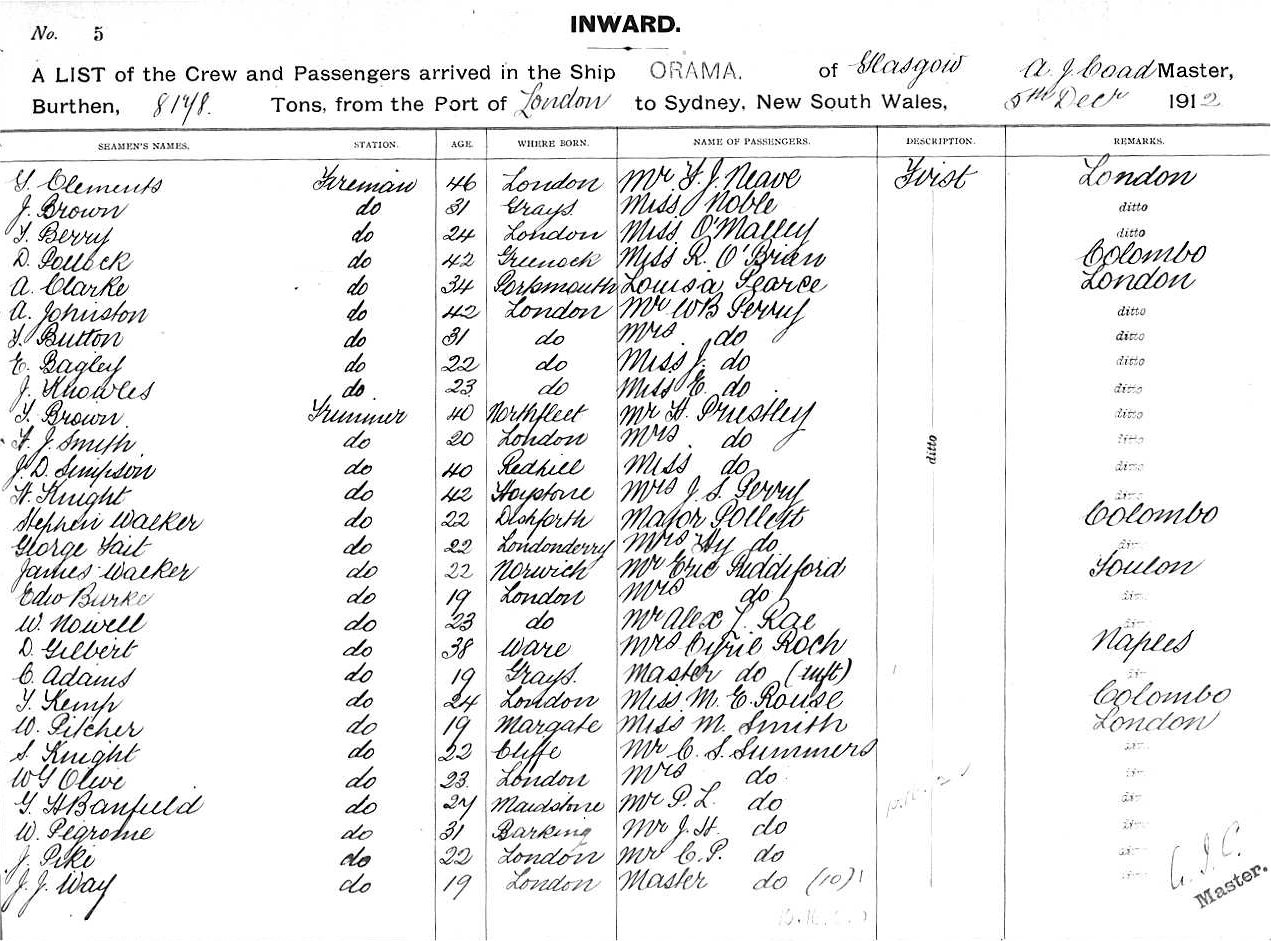 No. 5
INWARD.
A LIST of the Crew and Passengers arrived in the Ship ORAMA. of Glasgow A. J. Coad Master,
Burthen, 8178. Tons, from the Port of London to Sydney, New South Wales, 5th Decr 1912
SEAMEN'S NAMES. STATION. AGE. WHERE BORN. NAME OF PASSENGERS. DESCRIPTION. REMARKS.
G. Clements Fireman 46 London Mr F. J. Neave First London
J. Brown do 31 Grays Miss Noble ditto
T. Berry do 24 London Miss O'Malley ditto
D. Pollock do 42 Greenock Miss R. O'Brien Colombo
A. Clarke do 34 Portsmouth Louisa Pearce London
A. Johnston do 42 London Mr W B Perry ditto
T. Button do 31 do Mrs do ditto
E. Bagley do 22 do Miss J. do ditto
J. Knowles do 23 do Miss E. do ditto
T. Brown Trimmer 40 Northfleet Mr H. Priestley ditto
F. J. Smith do 20 London Mrs do ditto ditto
J. D. Simpson do 40 Redhill Miss do ditto
H. Knight do 42 Mrs J. S. Perry ditto
Stephen Walker do 22 Dishforth Major Pollett Colombo
George Tait do 22 Londonderry Mrs Hy do ditto
James Walker do 22 Norwich Mr Eric Riddiford Toulon
Edw Burke do 19 London Mrs do ditto
W. Nowell do 23 do Mr Alex T. Rae ditto
D. Gilbert do 38 Ware Mrs Cyrie Roch Naples
C. Adams do 19 Grays Master do (Inft) ditto
T. Kemp do 24 London Miss M. E. Rouse Colombo
W. Pitcher do 19 Margate Miss M. Smith London
S. Knight do 22 Cliffe Mr C. S. Summers ditto
W G Olive do 23 London Mrs do ditto
G. H Banfield do 27 Maidstone Mr P. L. do ditto
W. Pegrome do 31 Barking Mr J. H. do ditto
J. Pike do 22 London Mr C. P. do ditto
J. J. Way do 19 London Master do (10) ditto
A. J. C.
Master.